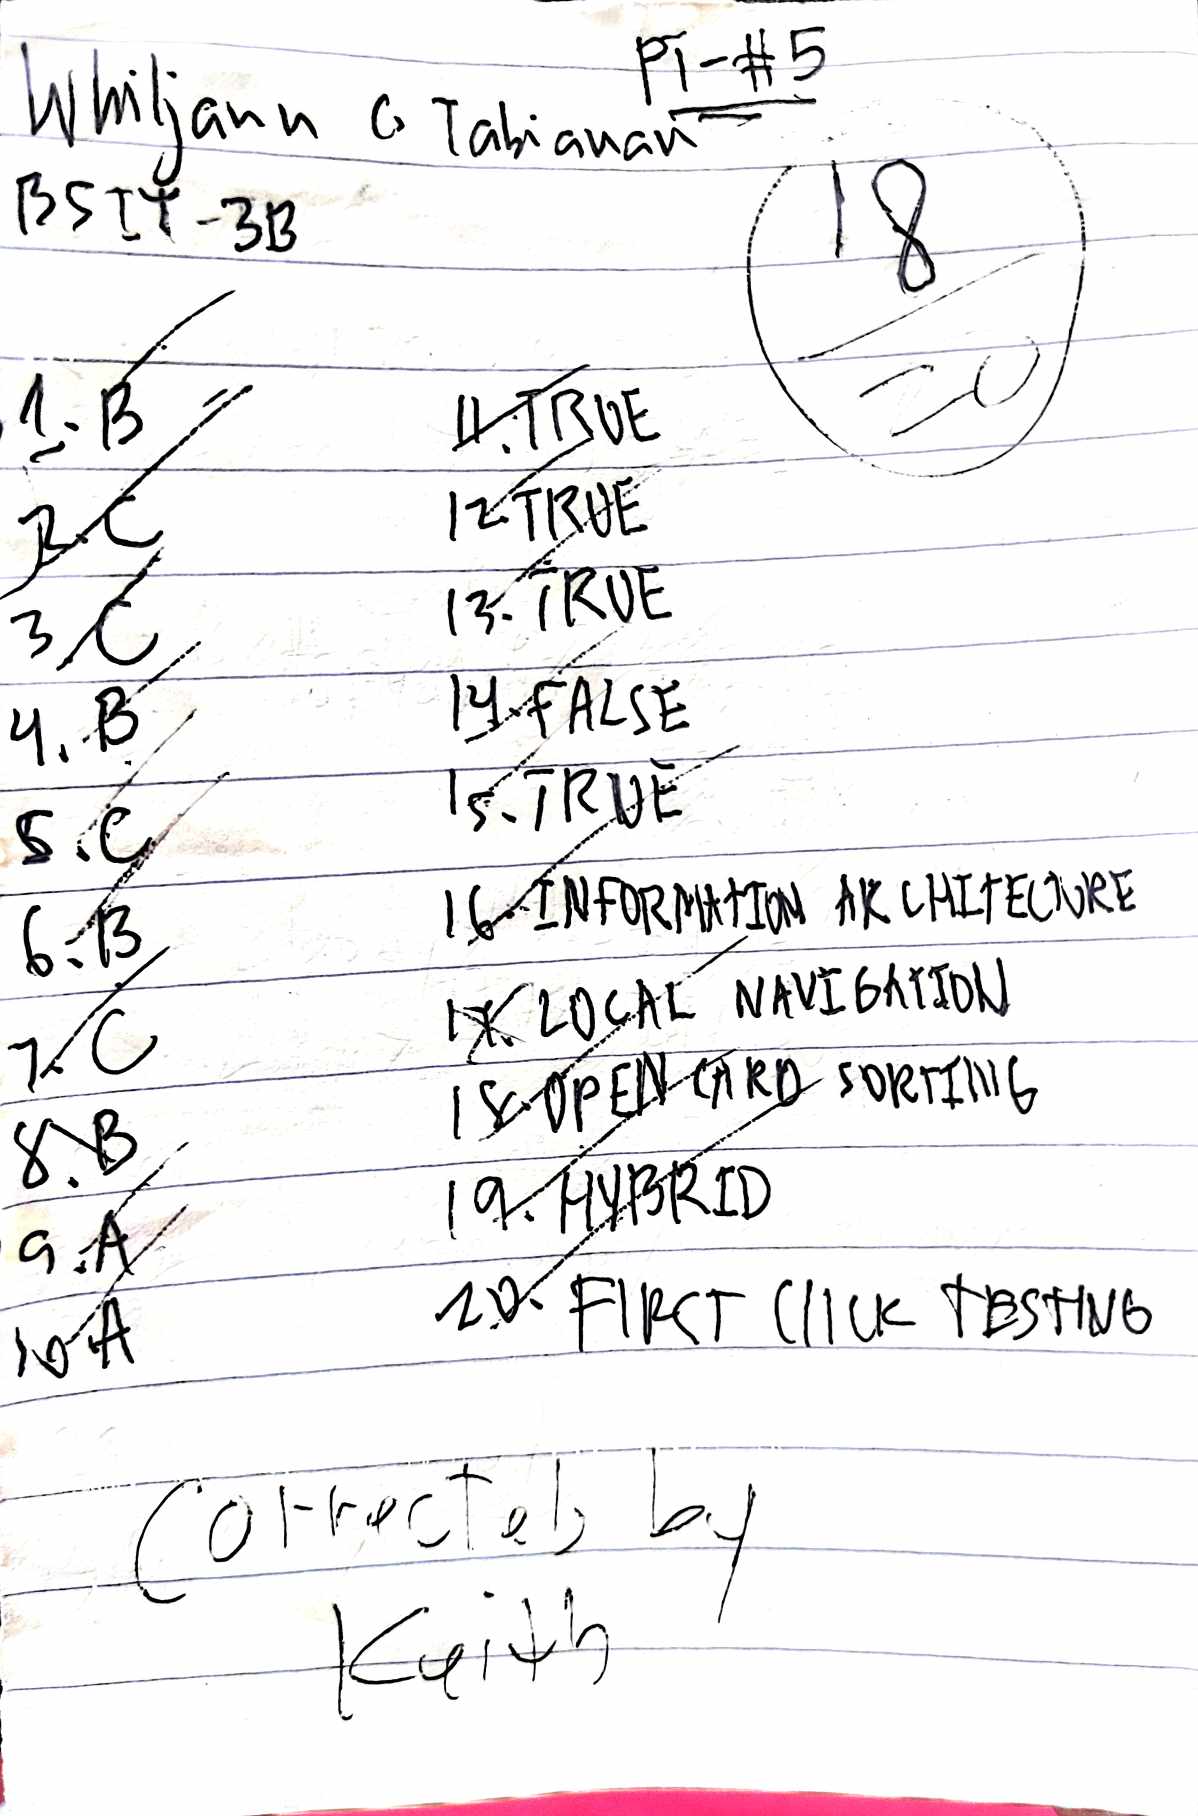 PT-#5
Whiljann G Tabianan
BSIT-3B
18
20
1. B
2. C
3. C
4. B
5. C
6. B
7. C
8. B
9. A
10. A
11. TRUE
12. TRUE
13. TRUE
14. FALSE
15. TRUE
16. INFORMATION ARCHITECTURE
17. LOCAL NAVIGATION
18. OPEN CARD SORTING
19. HYBRID
20. FIRST CLICK TESTING
Corrected by
Keith